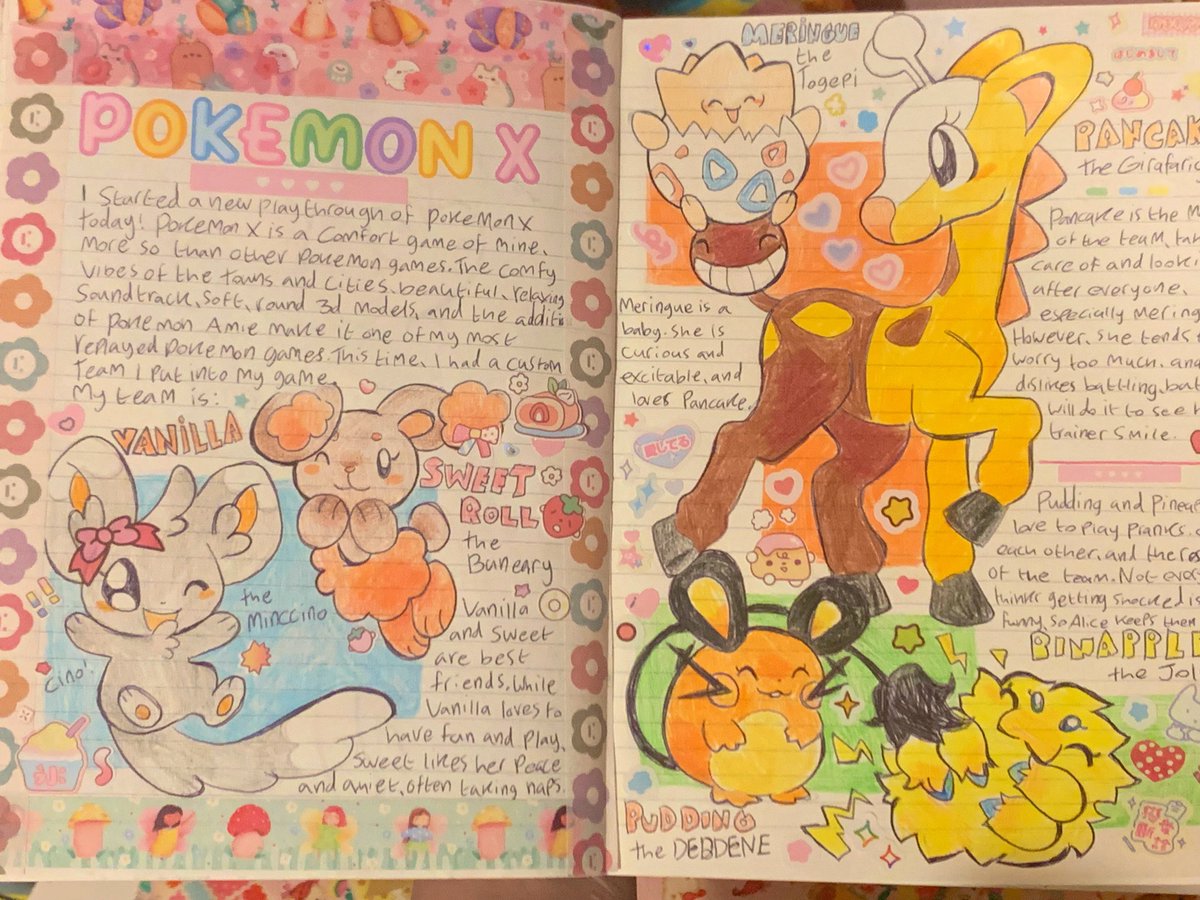 POKEMON X
I Started a new playthrough of pokemon x
today! Pokemon X is a comfort game of mine,
more so than other pokemon games. The comfy
vibes of the towns and cities, beautiful, relaxing
soundtrack, soft, round 3d models, and the additi
of pokemon Amie make it one of my most
replayed pokemon games. This time, I had a custom
team I put into my game.
My team is:
VANILLA
the
minccino
cino!
SWEET
ROLL
the
Buneary
Vanilla
and sweet
are best
friends. While
Vanilla loves to
have fun and play,
Sweet likes her peace
and quiet, often taking naps.
MERINGUE
the
Togepi
Meringue is a
baby. she is
curious and
excitable, and
loves Pancake.
はじめまして
PANCAK
the Girafaric
Pancake is the M
of the team, tak
care of and looki
after everyone,
especially mering
However, she tends t
worry too much, and
dislikes battling, but
will do it to see h
trainer smile.
Pudding and Pineap
love to play pranks
each other, and the re
of the team. Not eve
thinks getting shocked is
funny, so Alice keeps them
BINAPPLE
the Jol
PUDDING
the DEDDENE